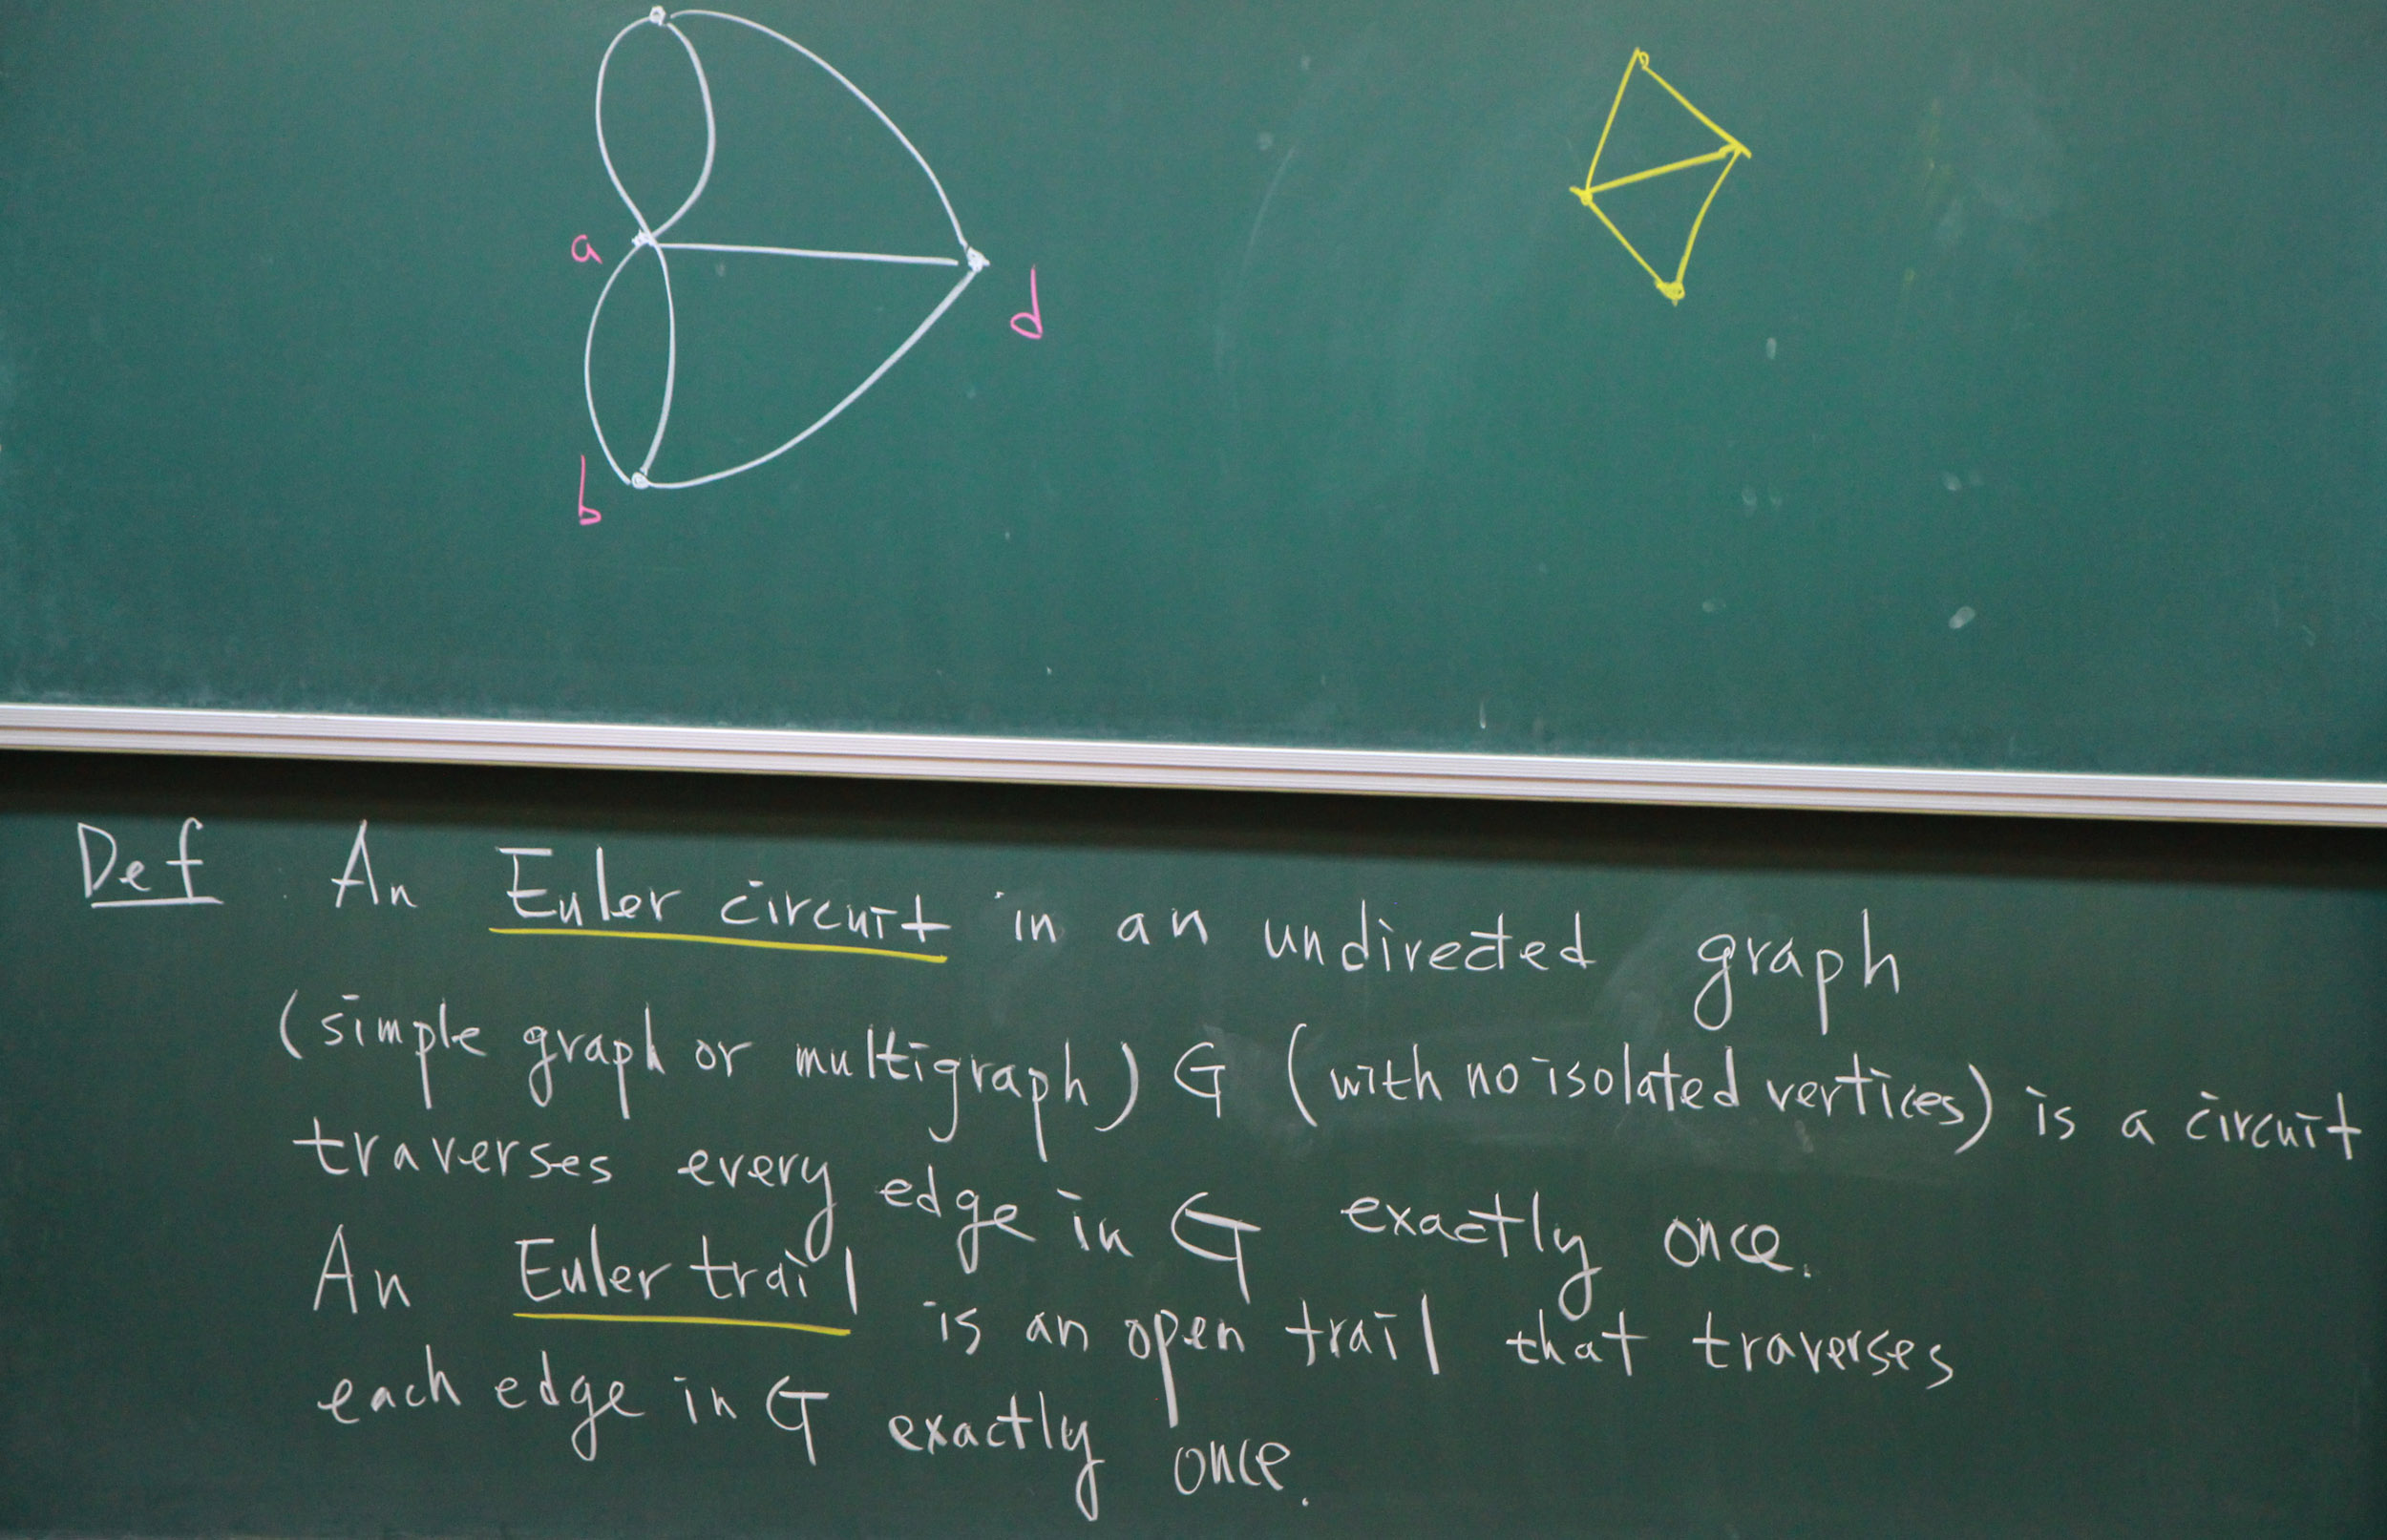 a
d
b
Def. An Euler circuit in an undirected graph
(simple graph or multigraph) G (with no isolated vertices) is a circuit
traverses every edge in G exactly once.
An Euler trail is an open trail that traverses
each edge in G exactly once.